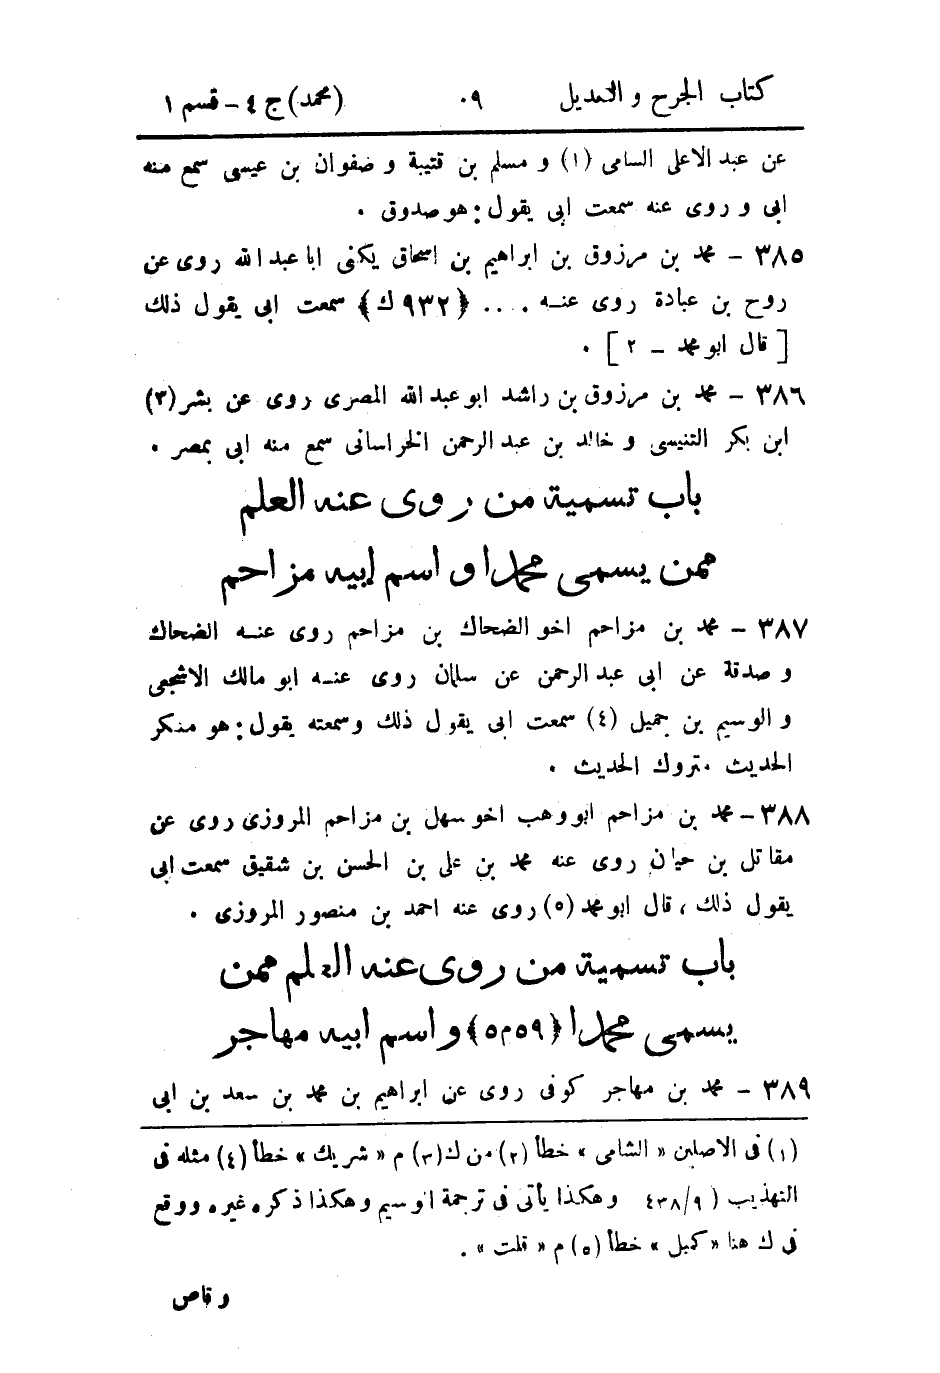 كتاب الجرح و التعديل ٠٩ (محمد) ج ٤ - قسم ١
عن عبد الاعلى السامى (١) و مسلم بن قتيبة و صفوان بن عيسى سمع منه
ابى و روى عنه سمعت ابى يقول: هو صدوق .
٣٨٥ - محمد بن مرزوق بن ابراهيم بن اسحاق يكنى ابا عبد الله روى عن
روح بن عبادة روى عنه . ... (٩٣٢ ك) سمعت ابى يقول ذلك
[ قال ابو محمد - ٢ ] .
٣٨٦ - محمد بن مرزوق بن راشد ابو عبد الله المصرى روى عن بشر (٣)
ابن بكر التنيسى و خالد بن عبد الرحمن الخراسانى سمع منه ابى بمصر .
باب تسمية من روى عنه العلم
ممن يسمى محمدا و اسم ابيه مزاحم
٣٨٧ - محمد بن مزاحم اخو الضحاك بن مزاحم روى عنه الضحاك
و صدقة عن ابى عبد الرحمن عن سلمان روى عنه ابو مالك الاشجعى
و الوسيم بن جميل (٤) سمعت ابى يقول ذلك وسمعته يقول: هو منكر
الحديث متروك الحديث .
٣٨٨ - محمد بن مزاحم ابو وهب اخو سهل بن مزاحم المروزى روى عن
مقاتل بن حيان روى عنه محمد بن على بن الحسن بن شقيق سمعت ابى
يقول ذلك ، قال ابو محمد (٥) روى عنه احمد بن منصور المروزى .
باب تسمية من روى عنه العلم ممن
يسمى محمدا (٥٩ م ٥) و اسم ابيه مهاجر
٣٨٩ - محمد بن مهاجر كوفى روى عن ابراهيم بن محمد بن سعد بن ابى
(١) فى الاصلين « الشامى » خطأ (٢) من ك (٣) م « شريك » خطأ (٤) مثله فى
التهذيب ( ٩/ ٤٣٨ وهكذا يأتى فى ترجمة الوسيم وهكذا ذكره غيره ووقع
فى ك هنا « كميل » خطأ (٥) م « قلت » .
و قاص